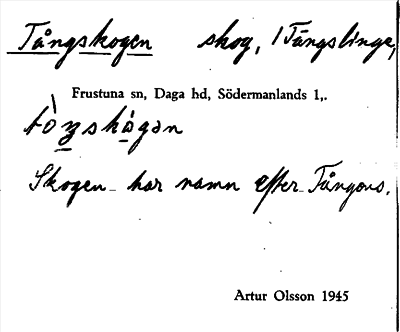 Tångskogen skog, 1 Tångslinge,
Frustuna sn, Daga hd, Södermanlands l,.
Skogen har namn efter Tångons.
Artur Olsson 1945